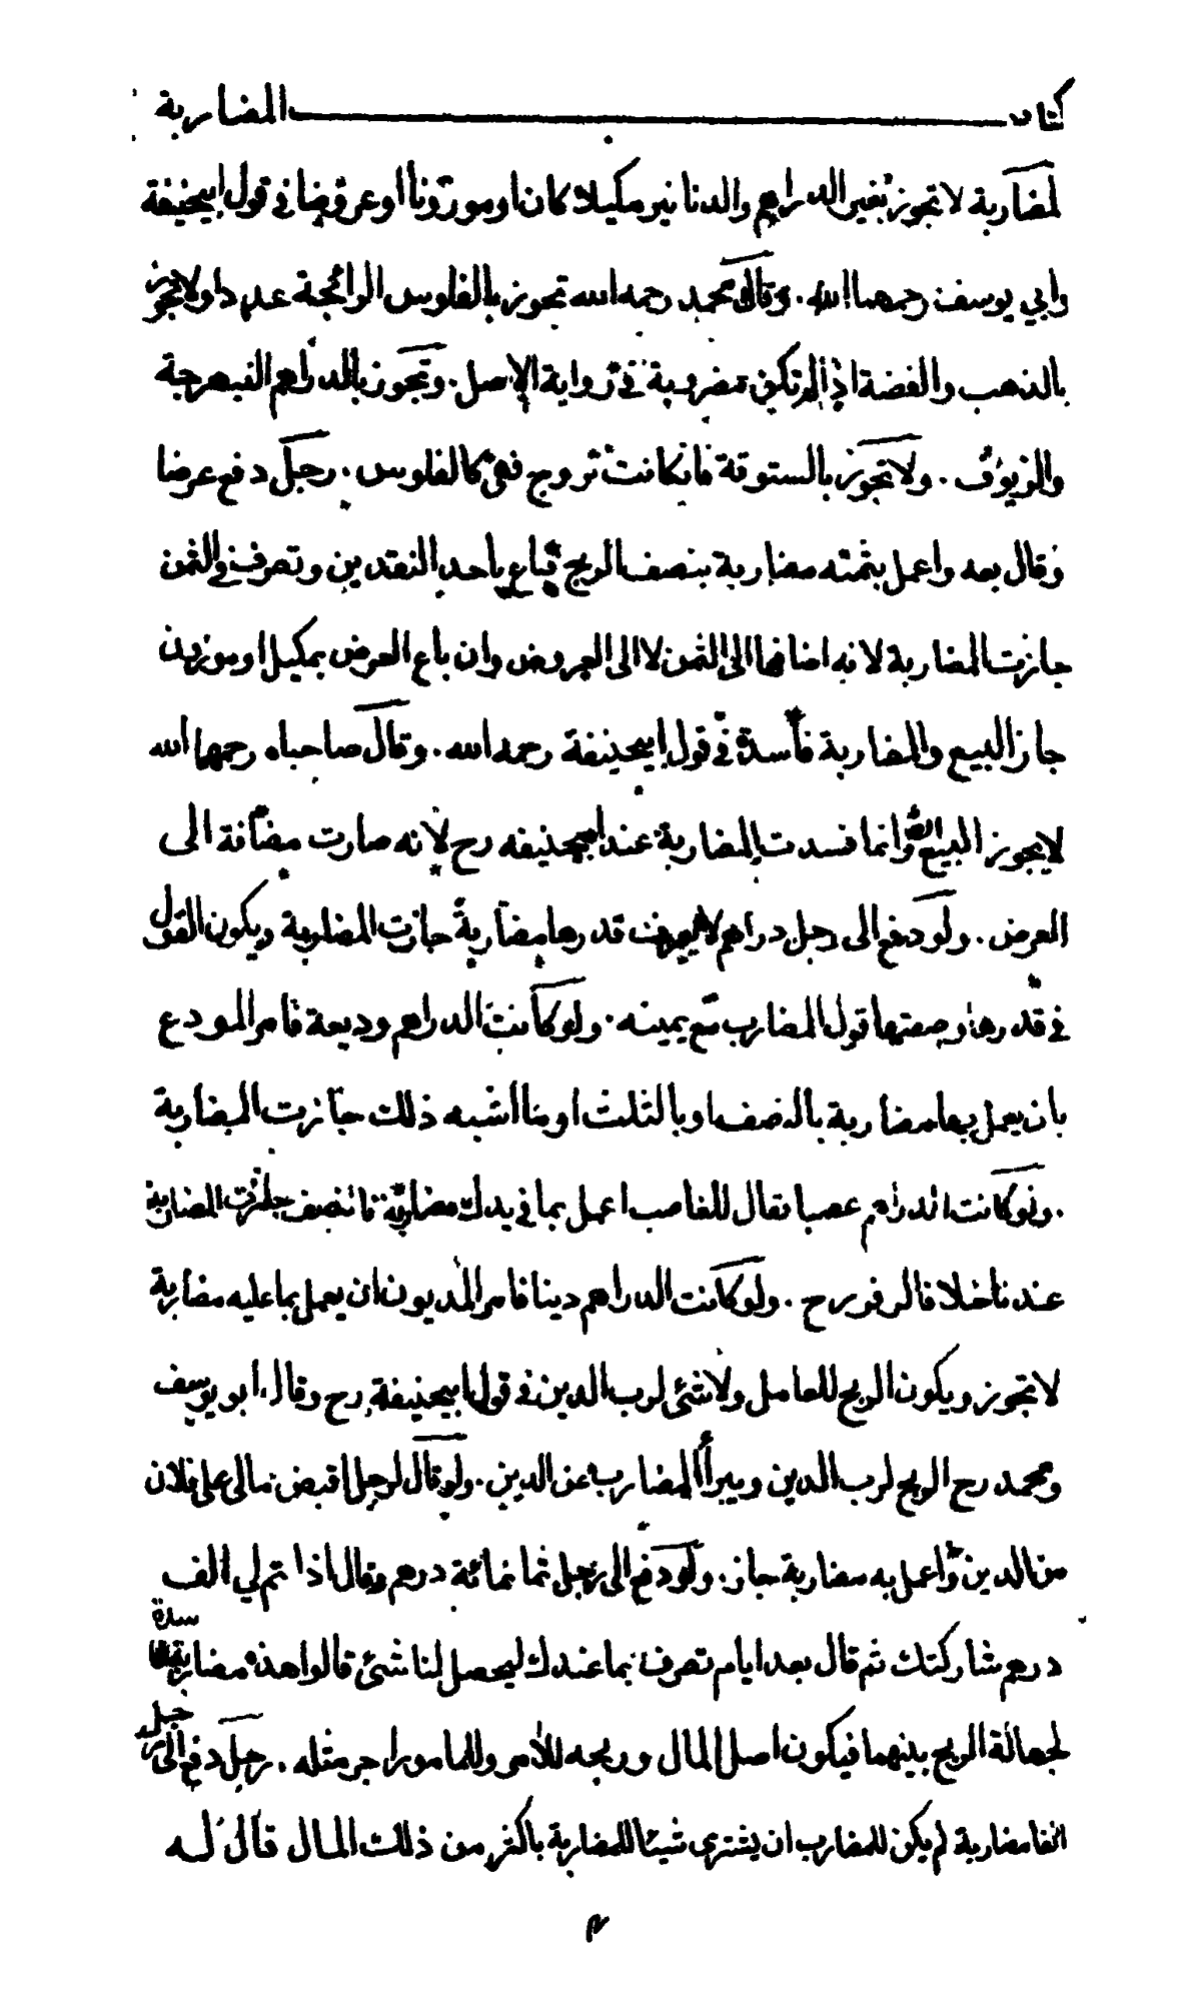 كتاب المضاربة
لمضاربة لا تجوز بغير الدراهم والدنانير مكيلا كان او موزونا او عروضا في قول ابيحنيفة
وابي يوسف رحمهما الله . وقال محمد رحمه الله تجوز بالفلوس الرائجة عددا ولا تجوز
بالذهب والفضة اذا لم تكن مضروبة في رواية الاصل . وتجوز بالدراهم النبهرجة
والزيوف . ولا تجوز بالستوقة فانكانت تروج فهي كالفلوس . رجل دفع عرضا
وقال بعه واعمل بثمنه مضاربة بنصف الربح فباع باحد النقدين وتصرف في الثمن
جازت المضاربة لانه اضافها الى الثمن لا الى العروض وان باع العرض بمكيل او موزون
جاز البيع والمضاربة فاسدة في قول ابيحنيفة رحمه الله . وقال صاحباه رحمهما الله
لايجوز البيع ايضا وانما فسدت المضاربة عند ابيحنيفه رح لانه صارت مضافة الى
العرض . ولو دفع الى رجل دراهم لا يعرف قدرها مضاربة جازت المضاربة ويكون القول
في قدرها وصفتها قول المضارب مع يمينه . ولو كانت الدراهم وديعة فامر المودع
بان يعمل بها مضاربة بالنصف او بالثلث او ما اشبه ذلك جازت المضاربة
. ولو كانت الدراهم غصبا فقال للغاصب اعمل بما في يدك مضاربة بالنصف جازت المضاربة
عندنا خلافا لزفر رح . ولو كانت الدراهم دينا فامر المديون ان يعمل بما عليه مضاربة
لا تجوز ويكون الربح للعامل ولا شئ لرب الدين في قول ابيحنيفة رح وقال ابو يوسف
ومحمد رح الربح لرب الدين ويبرأ المضارب عن الدين . ولو قال لرجل اقبض مالى على فلان
من الدين واعمل به مضاربة جاز . ولو دفع الى رجل ثمانمائة درهم وقال اذا تم لي الف
درهم شاركتك ثم قال بعد ايام تصرف بما عندك ليحصل لنا شئ قالوا هذه مضاربة فاسدة
لجهالة الربح بينهما فيكون اصل المال وربحه للآمر وللمامور اجر مثله . رجل دفع الى رجل
الفا مضاربة لم يكن للمضارب ان يشترى شيئا للمضاربة باكثر من ذلك المال قال له